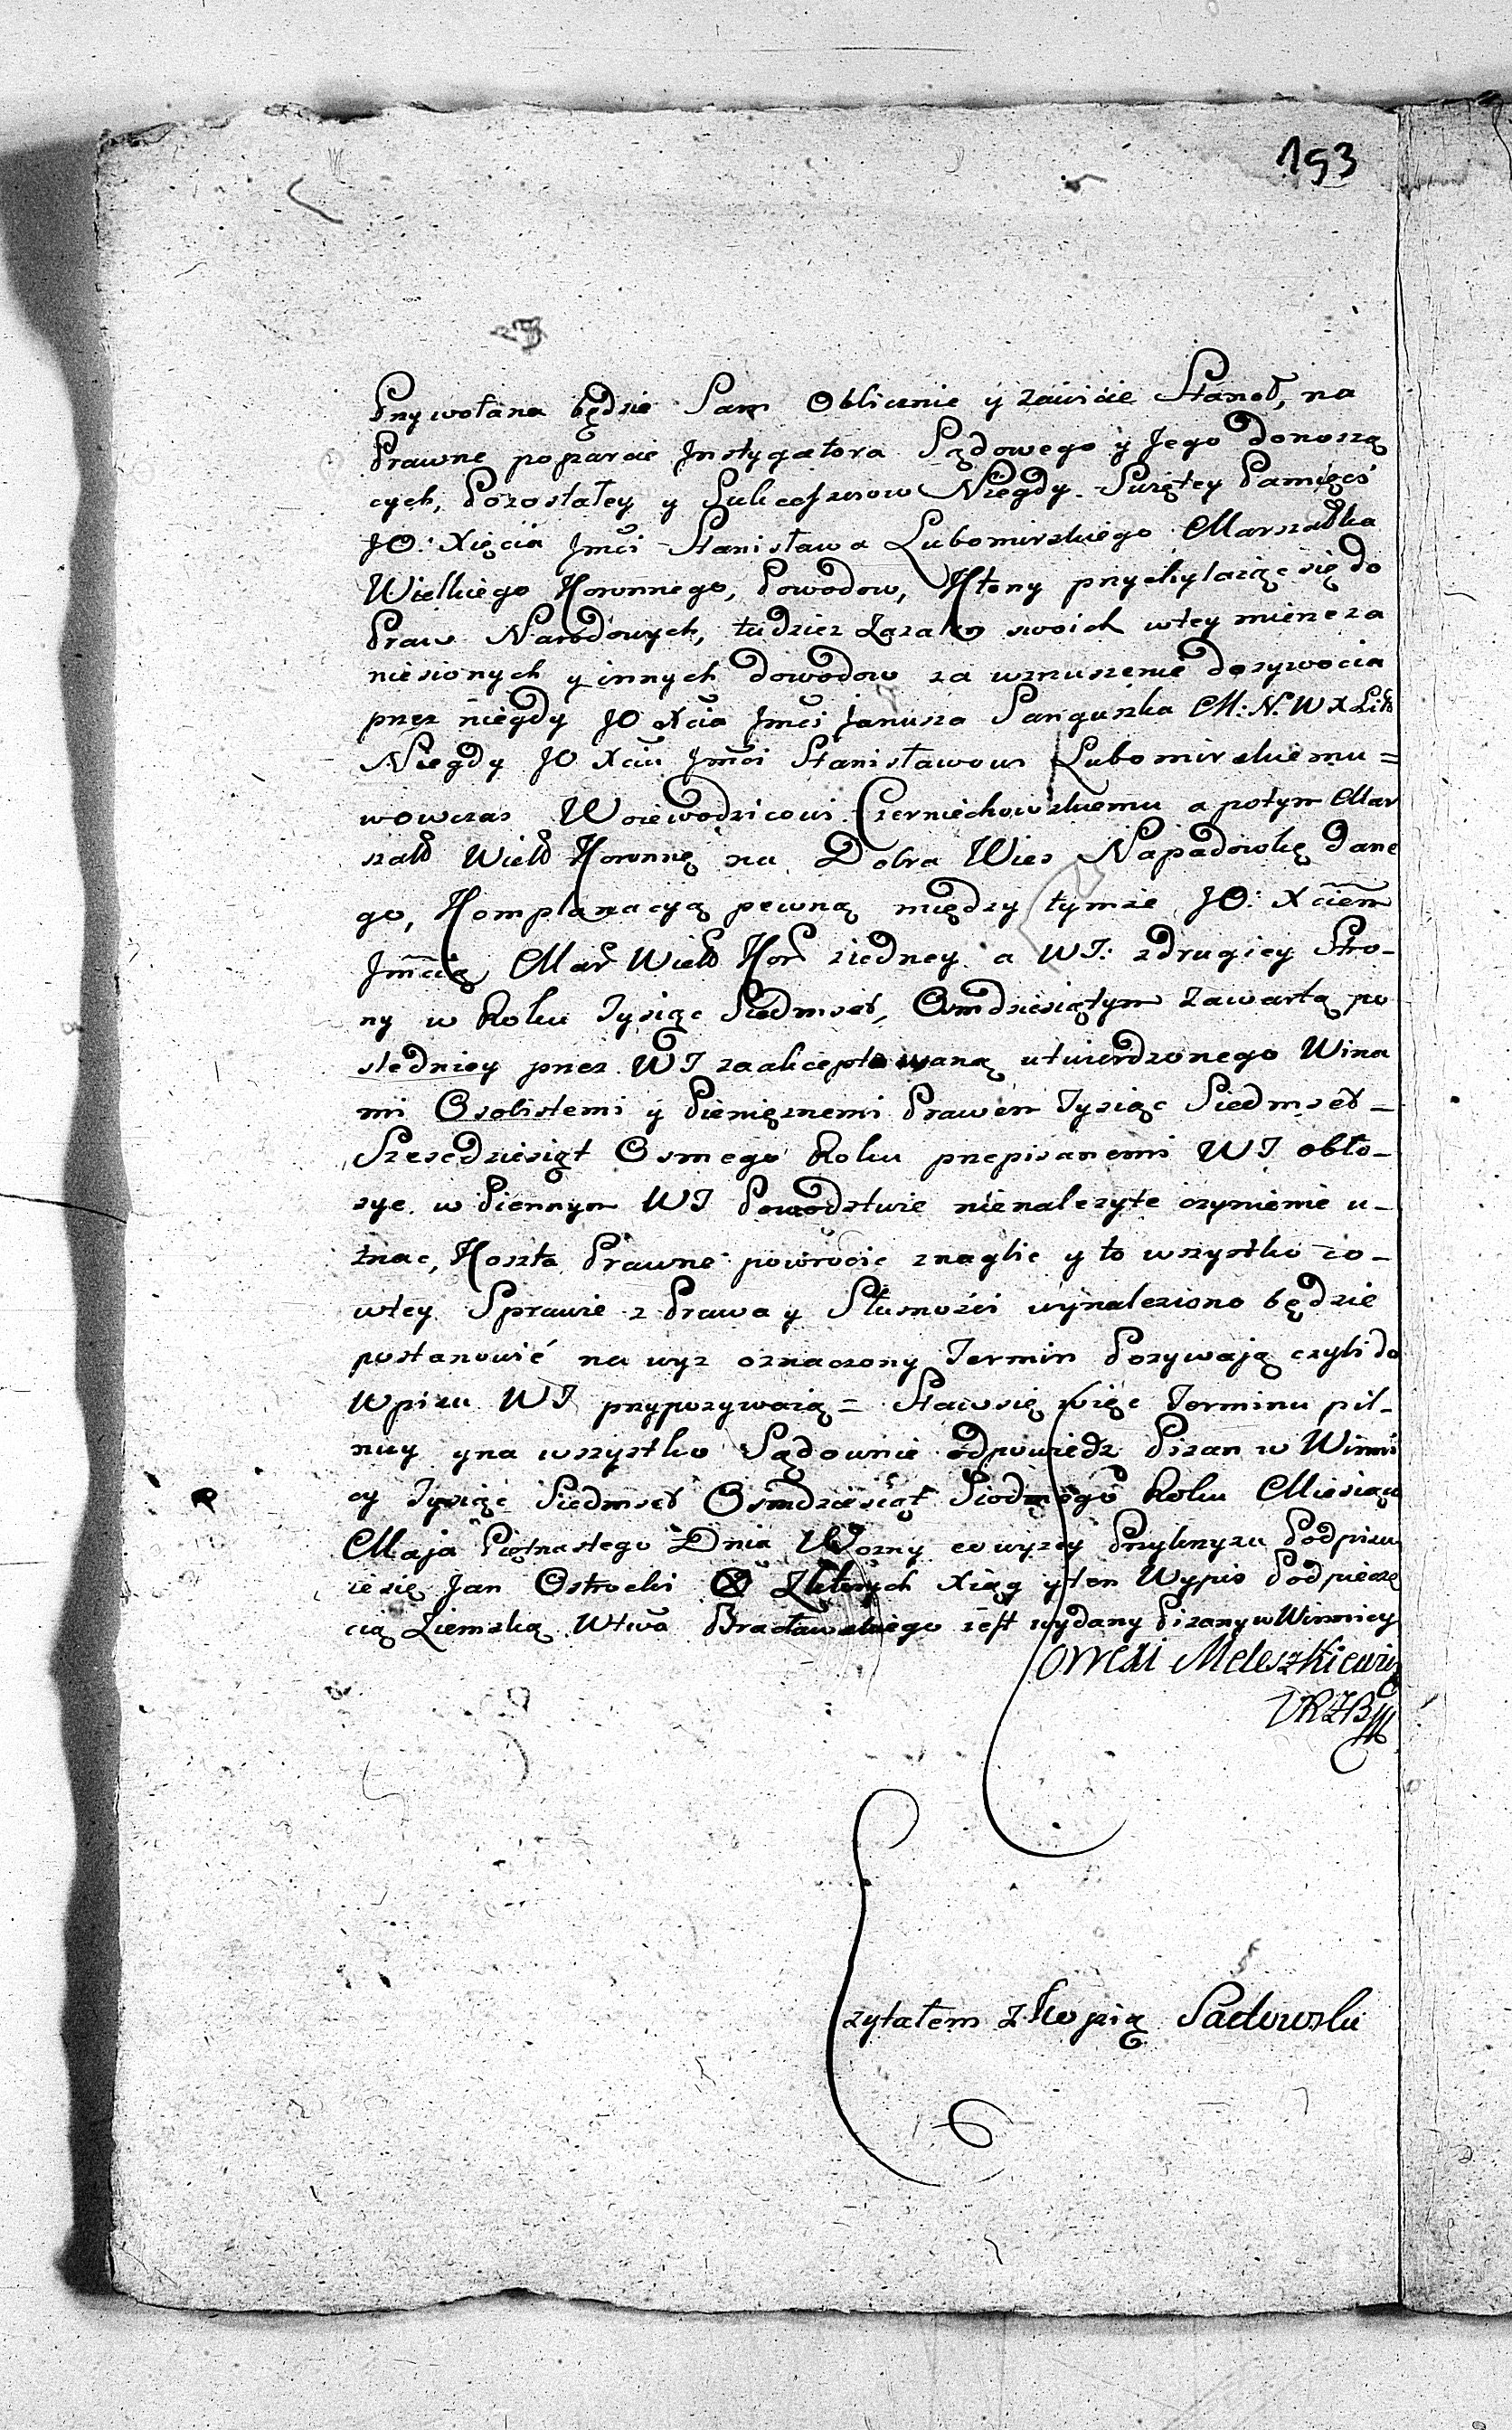 193
Przywołana będzie Sam Oblicznie y zawicie Stanoł, na
Prawne poparcie Jnstygatora Sądowego y Jego donoszą
cych, Pozostałey y Sukcessorow Niegdy Swiętey Pamięci
JO: Xięcia Jmći Stanisława Lubomirskiego Marszałka
Wielkiego Koronnego, Powodow, Ktory przychylaiąc się do
Praw Narodowych, tudziez Zazalen swoich wtey mierze za
niesionych y innych dowodow za wzruszenie dozywocia
przez niegdy JO Xcia Jmći Janusza Sanguszka M: N. W X Litt
Niegdy JO Xciu Jmći Stanisławowi Lubomirskiemu =
wowczas Woiewodzicowi Czerniechowskiemu a potym Mar
szałk Wielk Koronnę na Dobra Wies Napadowkę dane
go, Komplanacyą pewną między tymze JO: Xciem
Jmcią Mar Wielk Kor ziedney a WJ: zdrugiey Stro-
ny w Roku Tysiąc Siedmset, Osmdziesiątym zawartą po
sledniey przez WJ zaakceptowaną utwierdzonego Wina
mi Osobistemi y Pieniężnemi Prawem Tysiąc Siedmset -
Szescdziesiąt Osmego Roku przepisanemi WJ obło-
zyc. w Piennym WJ Powodztwie nienalezyte czynienie u-
znac, Koszta Prawne powrocic znaglic y to wszystko co -
wtey Sprawie z Prawa y Słusznosci wynaleziono będzie
postanowić na wyz oznaczony Termin Pozywają czyli do
Wpisu WJ przypozywaią = Stawsię więc Terminu pil-
nuy yna wszystko Sądownie odpowiedz Pisan w Winni
cy Tysiąc Siedmset Osmdziesiąt Siodmego Roku Miesiąca
Maja Piętnastego Dnia Wozny co wyzey Przykrzyzu Podpisu
ie się Jan Ostrocki Zktorych Xiąg yten Wypis Podpieczę
cią Ziemską Wtwa Bracławskiego iest wydany Pisany w Winnicy
Correxi Meleszkiewicz
VRZB
Czytałem z Kopią Sadowski